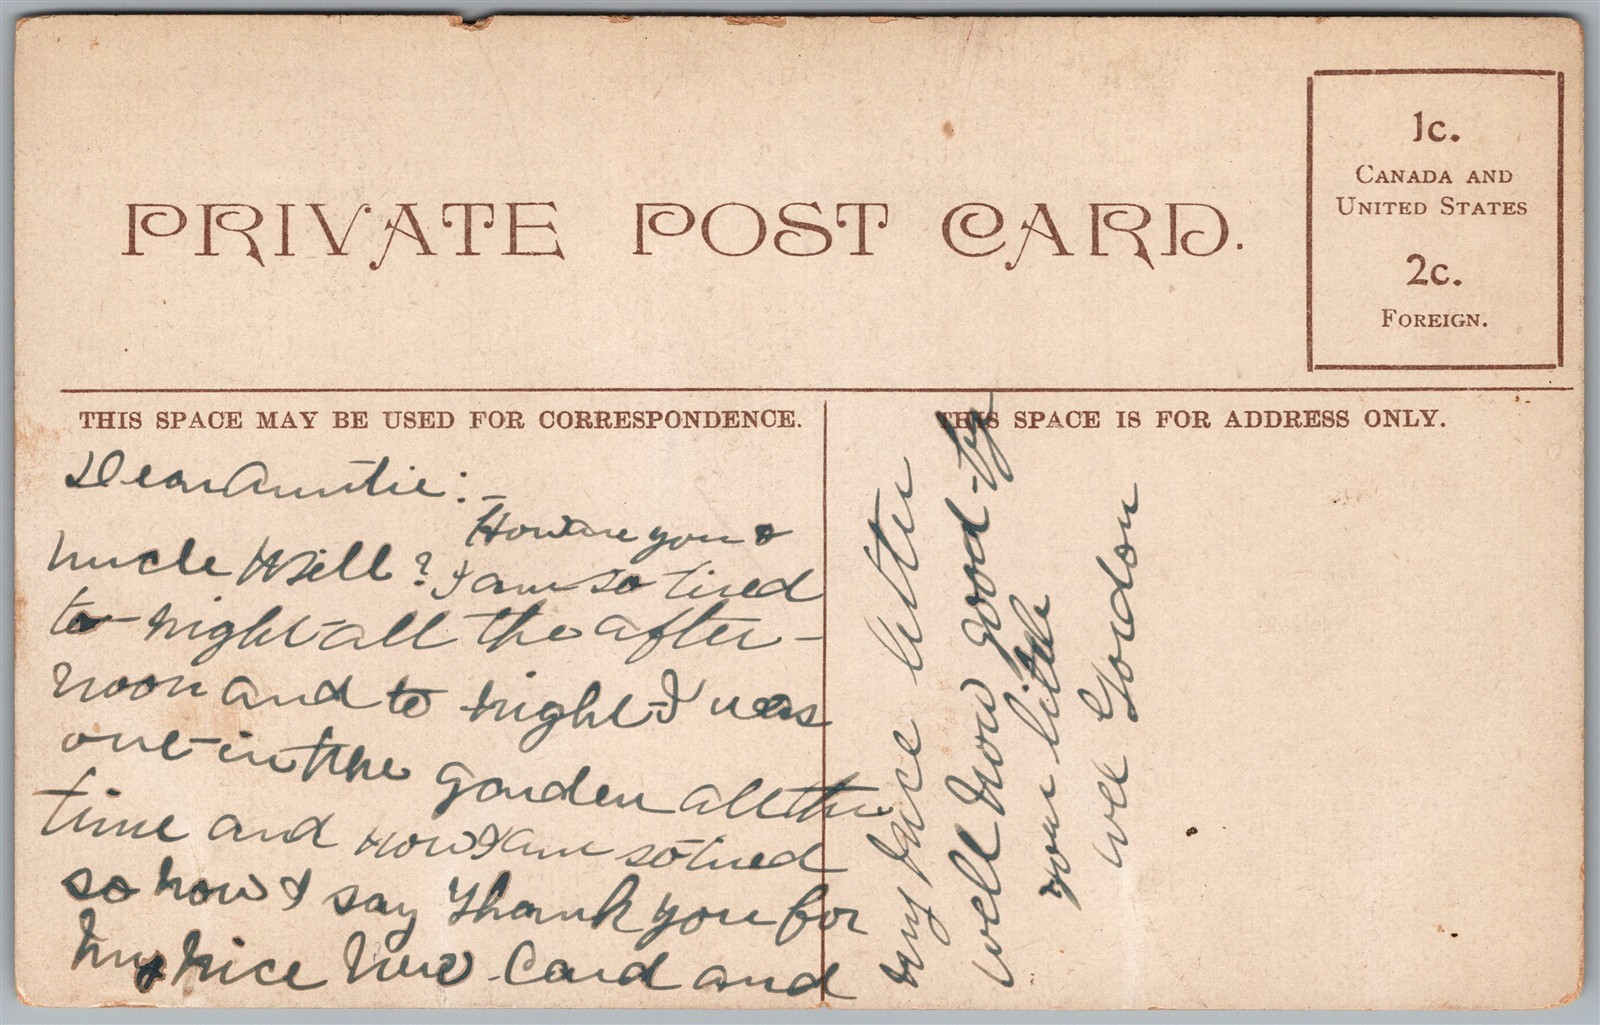 PRIVATE POST CARD.
1c.
CANADA AND
UNITED STATES
2c.
FOREIGN.
THIS SPACE MAY BE USED FOR CORRESPONDENCE.
THIS SPACE IS FOR ADDRESS ONLY.
Dear Auntie:-
How are you &
uncle Will? I am so tired
to-night all the after-
noon and to night I was
out in the garden all the
time and now I am so tired
so now I say thank you for
my nice new Card and
my nice letter
well now good-by
your little
wee Gordon